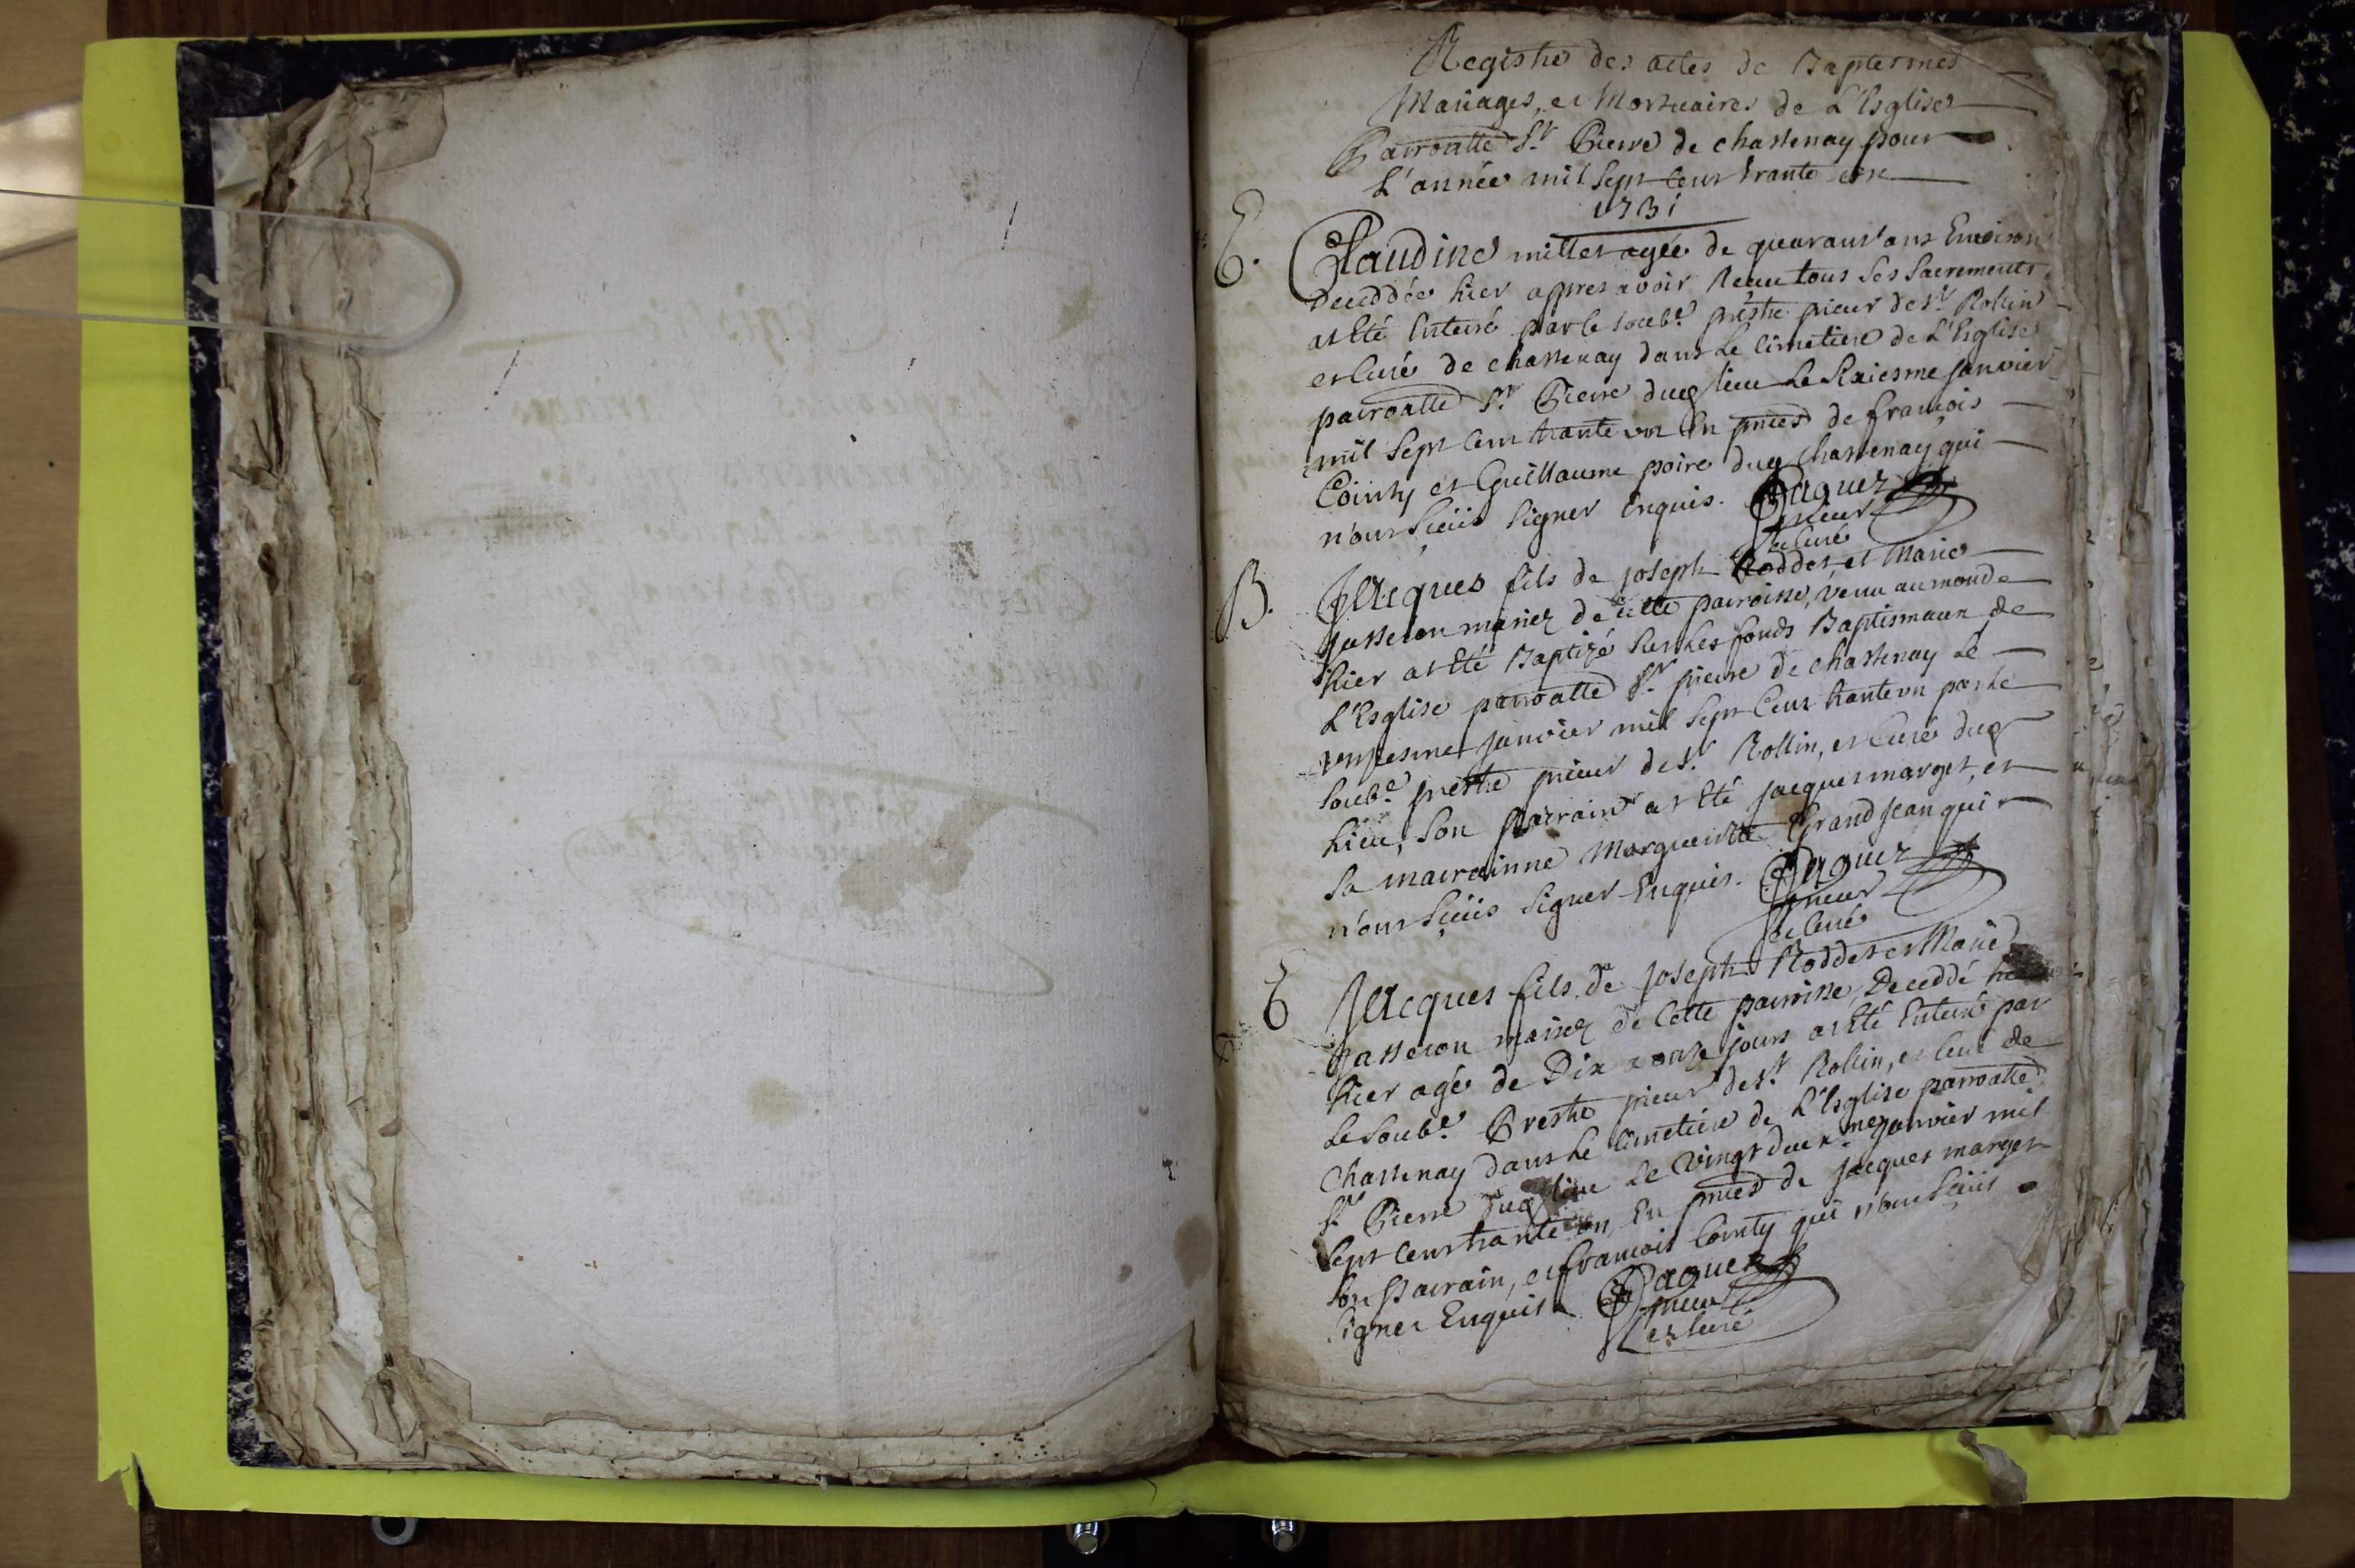 Registre des actes de Baptesmes
Mariages, et Mortuaires de L'Esglise
Parroalle St. Pierre de chastenay pour
L'année mil sept cent trante un
1731
E. Claudine millet agée de quarant ans Environ
deceddée hier appres avoir Receu tous ses sacrements
at Eté Enterré par le soubé. prêstre prieur de St. Rollin
et Curé de chastenay dans Le Cimetiere de L'Esglise
parroalle St. Pierre dud lieu Le Janvier
mil sept cent trante un En pnce de françois
Cointy et Guillaume poire dud Chastenay qui
n'ont sceüs signer Enquis. Paguez
prieur
et Curé
B. JAcques fils de Joseph Roddet et Marie
Jasseron mariez de cette parroisse, venu au monde
hier at Eté Baptizé sur Les fonds Baptismaux de
L'Esglise parroalle St. pierre de chastenay Le
Janvier mil sept Cent trante un par Le
soubé. prestre prieur de St. Rollin, et Curé dud
Lieu, son parrain at Eté Jacques marget, et
sa marrainne Margueritte Grand Jean qui
n'ont sceüs signer Enquis. Paguez
prieur
et Curé
E JAcques fils de Joseph Roddet et Marie
Jasseron mariez de Cette parroisse, Deceddé
hier agé de Dix a onze jours at Eté Enterré par
Le soubé. Prestre prieur de St. Rollin, et Curé de
Chastenay dans Le Cimetiere de L'Esglise parroalle
St. Pierre dud lieu Le Vingt Janvier mil
sept cent trante un, En pnce de Jacques marget
son parrain, et françois Cointy qui n'ont sceüs
signer Enquis Paguez
prieur
et Curé